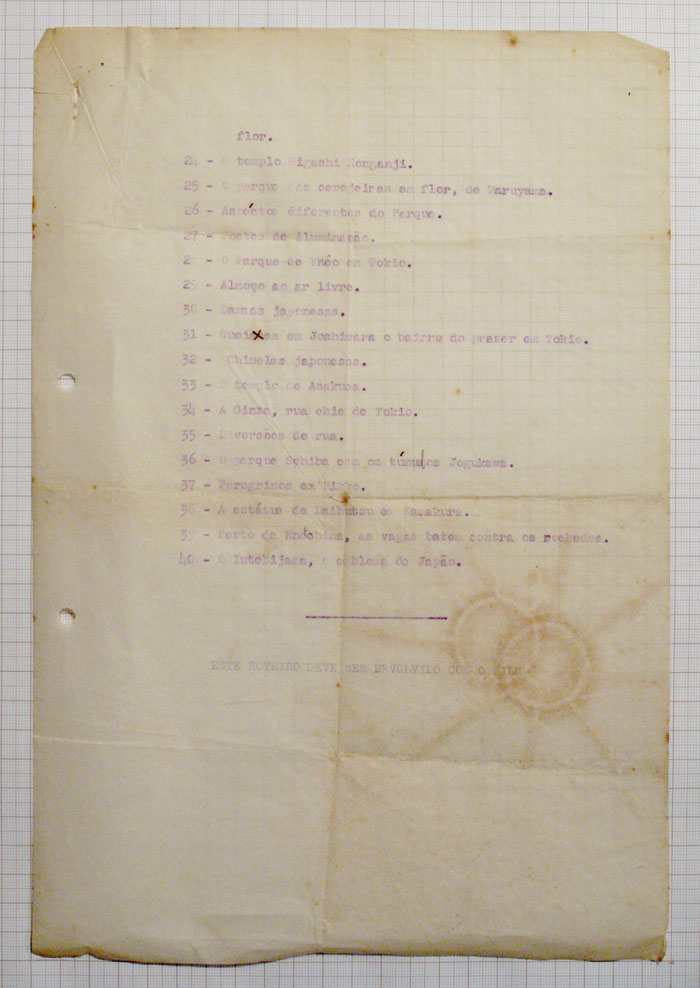 flor.
24 - O templo Higashi Honganji.
25 - O parque das cerejeiras em flor, de Maruyama.
26 - Aspéctos diferentes do Parque.
27 - Postes de iluminação.
28 - O Parque de Ynéo em Tokio.
29 - Almoço ao ar livre.
30 - Dansas japonesas.
31 - Gueixas em Joshiwara o bairro do prazer em Tokio.
32 - Chinelas japonesas.
33 - O templo de Asakusa.
34 - A Ginza, rua chic de Tokio.
35 - Diversões de rua.
36 - O parque Schiba com os túmulos Jogukawa.
37 - Peregrinos em Nikko.
38 - A estátua de Daibutsu em Kamakura.
39 - Perto de as vagas batem contra os rochedos.
40 - O o emblema do Japão.
ESTE ROTEIRO DEVE SER DEVOLVIDO COM O FILM